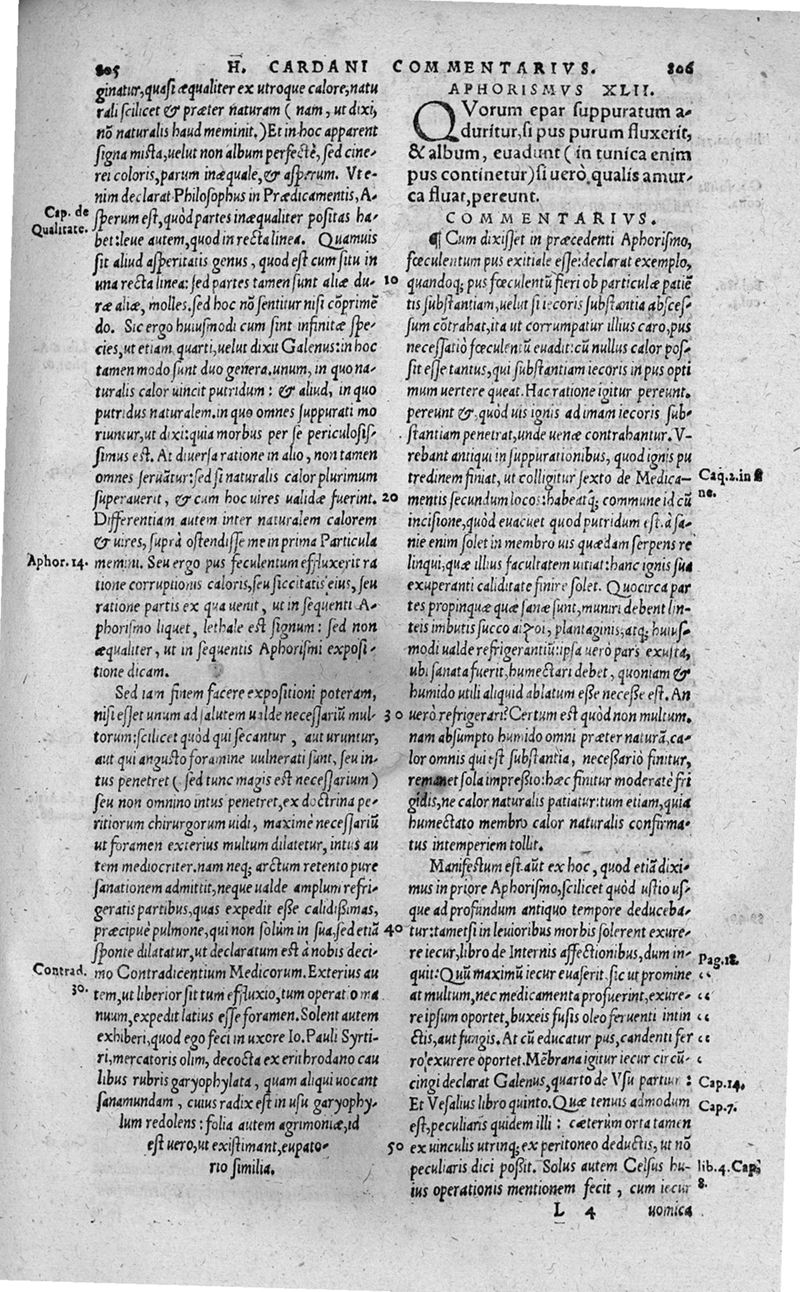 805 H. CARDANI COMMENTARIVS. 806
ginatur, quasi æqualiter ex utroque calore, natu
rali scilicet & præter naturam (nam, ut dixi,
nõ naturalis haud meminit.) Et in hoc apparent
signa mista, uelut non album perfectè, sed cine-
rei coloris, parum inæquale, & asperum. Vt e-
nim declarat Philosophus in Prædicamentis, A-
sperum est, quòd partes inæqualiter positas ha-
Cap. de
Qualitate.
bet: leue autem, quod in recta linea. Quamuis
sit aliud asperitatis genus, quod est cum situ in
una recta linea: sed partes tamen sunt aliæ du- 10
ræ aliæ, molles. sed hoc nõ sentitur nisi cõprimẽ
do. Sic ergo huiusmodi cum sint infinitæ spe-
cies, ut etiam quarti, uelut dixit Galenus: in hoc
tamen modo sunt duo genera, unum, in quo na-
turalis calor uincit putridum: & aliud, in quo
putridus naturalem. in quo omnes suppurati mo
riuntur, ut dixi: quia morbus per se periculosis-
simus est. At diuersa ratione in alio, non tamen
omnes seruãtur: sed si naturalis calor plurimum
superauerit, & cum hoc uires ualidæ fuerint. 20
Differentiam autem inter naturalem calorem
& uires, suprà ostendisse me in prima Particula
Aphor. 14. memini. Seu ergo pus feculentum effluxerit ra
tione corruptionis caloris, seu siccitatis eius, seu
ratione partis ex qua uenit, ut in sequenti A-
phorismo liquet, lethale est signum: sed non
æqualiter, ut in sequentis Aphorismi exposi-
tione dicam.
Sed iam finem facere expositioni poteram,
nisi esset unum ad salutem ualde necessariũ mul- 30
torum: scilicet quòd qui secantur, aut uruntur,
aut qui angusto foramine uulnerati sunt, seu in-
tus penetret (sed tunc magis est necessarium)
seu non omnino intus penetret, ex doctrina pe-
ritiorum chirurgorum uidi, maximè necessariũ
ut foramen exterius multum dilatetur, intus au
tem mediocriter. nam neq; arctum retento pure
sanationem admittit, neque ualde amplum refri-
geratis partibus, quas expedit esse calidissimas,
præcipuè pulmone, qui non solùm in sua, sed etiã 40
sponte dilatatur, ut declaratum est à nobis deci-
Contrad.
30.
mo Contradicentium Medicorum. Exterius au
tem, ut liberior sit tum effluxio, tum operatio ma
nuum, expedit latius esse foramen. Solent autem
exhiberi, quod ego feci in uxore Io. Pauli Syrti-
ri, mercatoris olim, decocta ex erithrodano cau
libus rubris garyophylata, quam aliqui uocant
sanamundam, cuius radix est in usu garyophy-
lum redolens: folia autem agrimoniæ, id
est uero, ut existimant, eupato- 50
rio similia.
APHORISMVS XLII.
QVorum epar suppuratum a-
duritur, si pus purum fluxerit,
& album, euadunt (in tunica enim
pus continetur) si uerò qualis amur-
ca fluat, pereunt.
COMMENTARIVS.
¶ Cum dixisset in præcedenti Aphorismo,
fœculentum pus exitiale esse: declarat exemplo,
quandoq; pus fœculentũ fieri ob particulæ patiẽ
tis substantiam, uelut si iecoris substantia absces-
sum cõtrahat, ita ut corrumpatur illius caro, pus
necessariò fœculentũ euadit: cũ nullus calor pos-
sit esse tantus, qui substantiam iecoris in pus opti
mum uertere queat. Hac ratione igitur pereunt.
pereunt &, quòd uis ignis ad imam iecoris sub-
stantiam penetrat, unde uenæ contrahantur. V-
rebant antiqui in suppurationibus, quod ignis pu
tredinem finiat, ut colligitur sexto de Medica-
Cap. 2. in fi
ne.
mentis secundum locos: habeatq; commune id cũ
incisione, quòd euacuet quod putridum est. à sa-
nie enim solet in membro uis quædam serpens re
linqui, quæ illius facultatem uitiat: hanc ignis sua
exuperanti caliditate finire solet. Quocirca par
tes propinquæ quæ sanæ sunt, muniri debent lin-
teis imbutis succo plantaginis, atq; huius-
modi ualde refrigerantiũ: ipsa uerò pars exusta,
ubi sanata fuerit, humectari debet, quoniam &
humido utili aliquid ablatum esse necesse est. An
uerò refrigerari? Certum est quòd non multum.
nam absumpto humido omni præter naturã, ca-
lor omnis qui est substantia, necessariò finitur,
remanet sola impressio: hæc finitur moderatè fri
gidis, ne calor naturalis patiatur: tum etiam, quia
humectato membro calor naturalis confirma-
tus intemperiem tollit.
Manifestum est aũt ex hoc, quod etiã dixi-
mus in priore Aphorismo, scilicet quòd ustio us-
que ad profundum antiquo tempore deduceba-
tur: tametsi in leuioribus morbis solerent exure-
re iecur, libro de Internis affectionibus, dum in- Pag. 18.
quit: Quũ maximũ iecur euaserit. sic ut promine
at multum, nec medicamenta profuerint, exure-
re ipsum oportet, buxeis fusis oleo feruenti intin
ctis, aut fungis. At cũ educatur pus, candenti fer
ro exurere oportet. Mẽbrana igitur iecur circũ-
cingi declarat Galenus, quarto de Vsu partium: Cap. 14.
Et Vesalius libro quinto. Quæ tenuis admodum Cap. 7.
est, peculiaris quidem illi: cæterùm orta tamen
ex uinculis utrinq; ex peritoneo deductis, ut nõ
peculiaris dici possit. Solus autem Celsus hu- lib. 4. Cap.
8.
ius operationis mentionem fecit, cum iecur
L 4 uomica